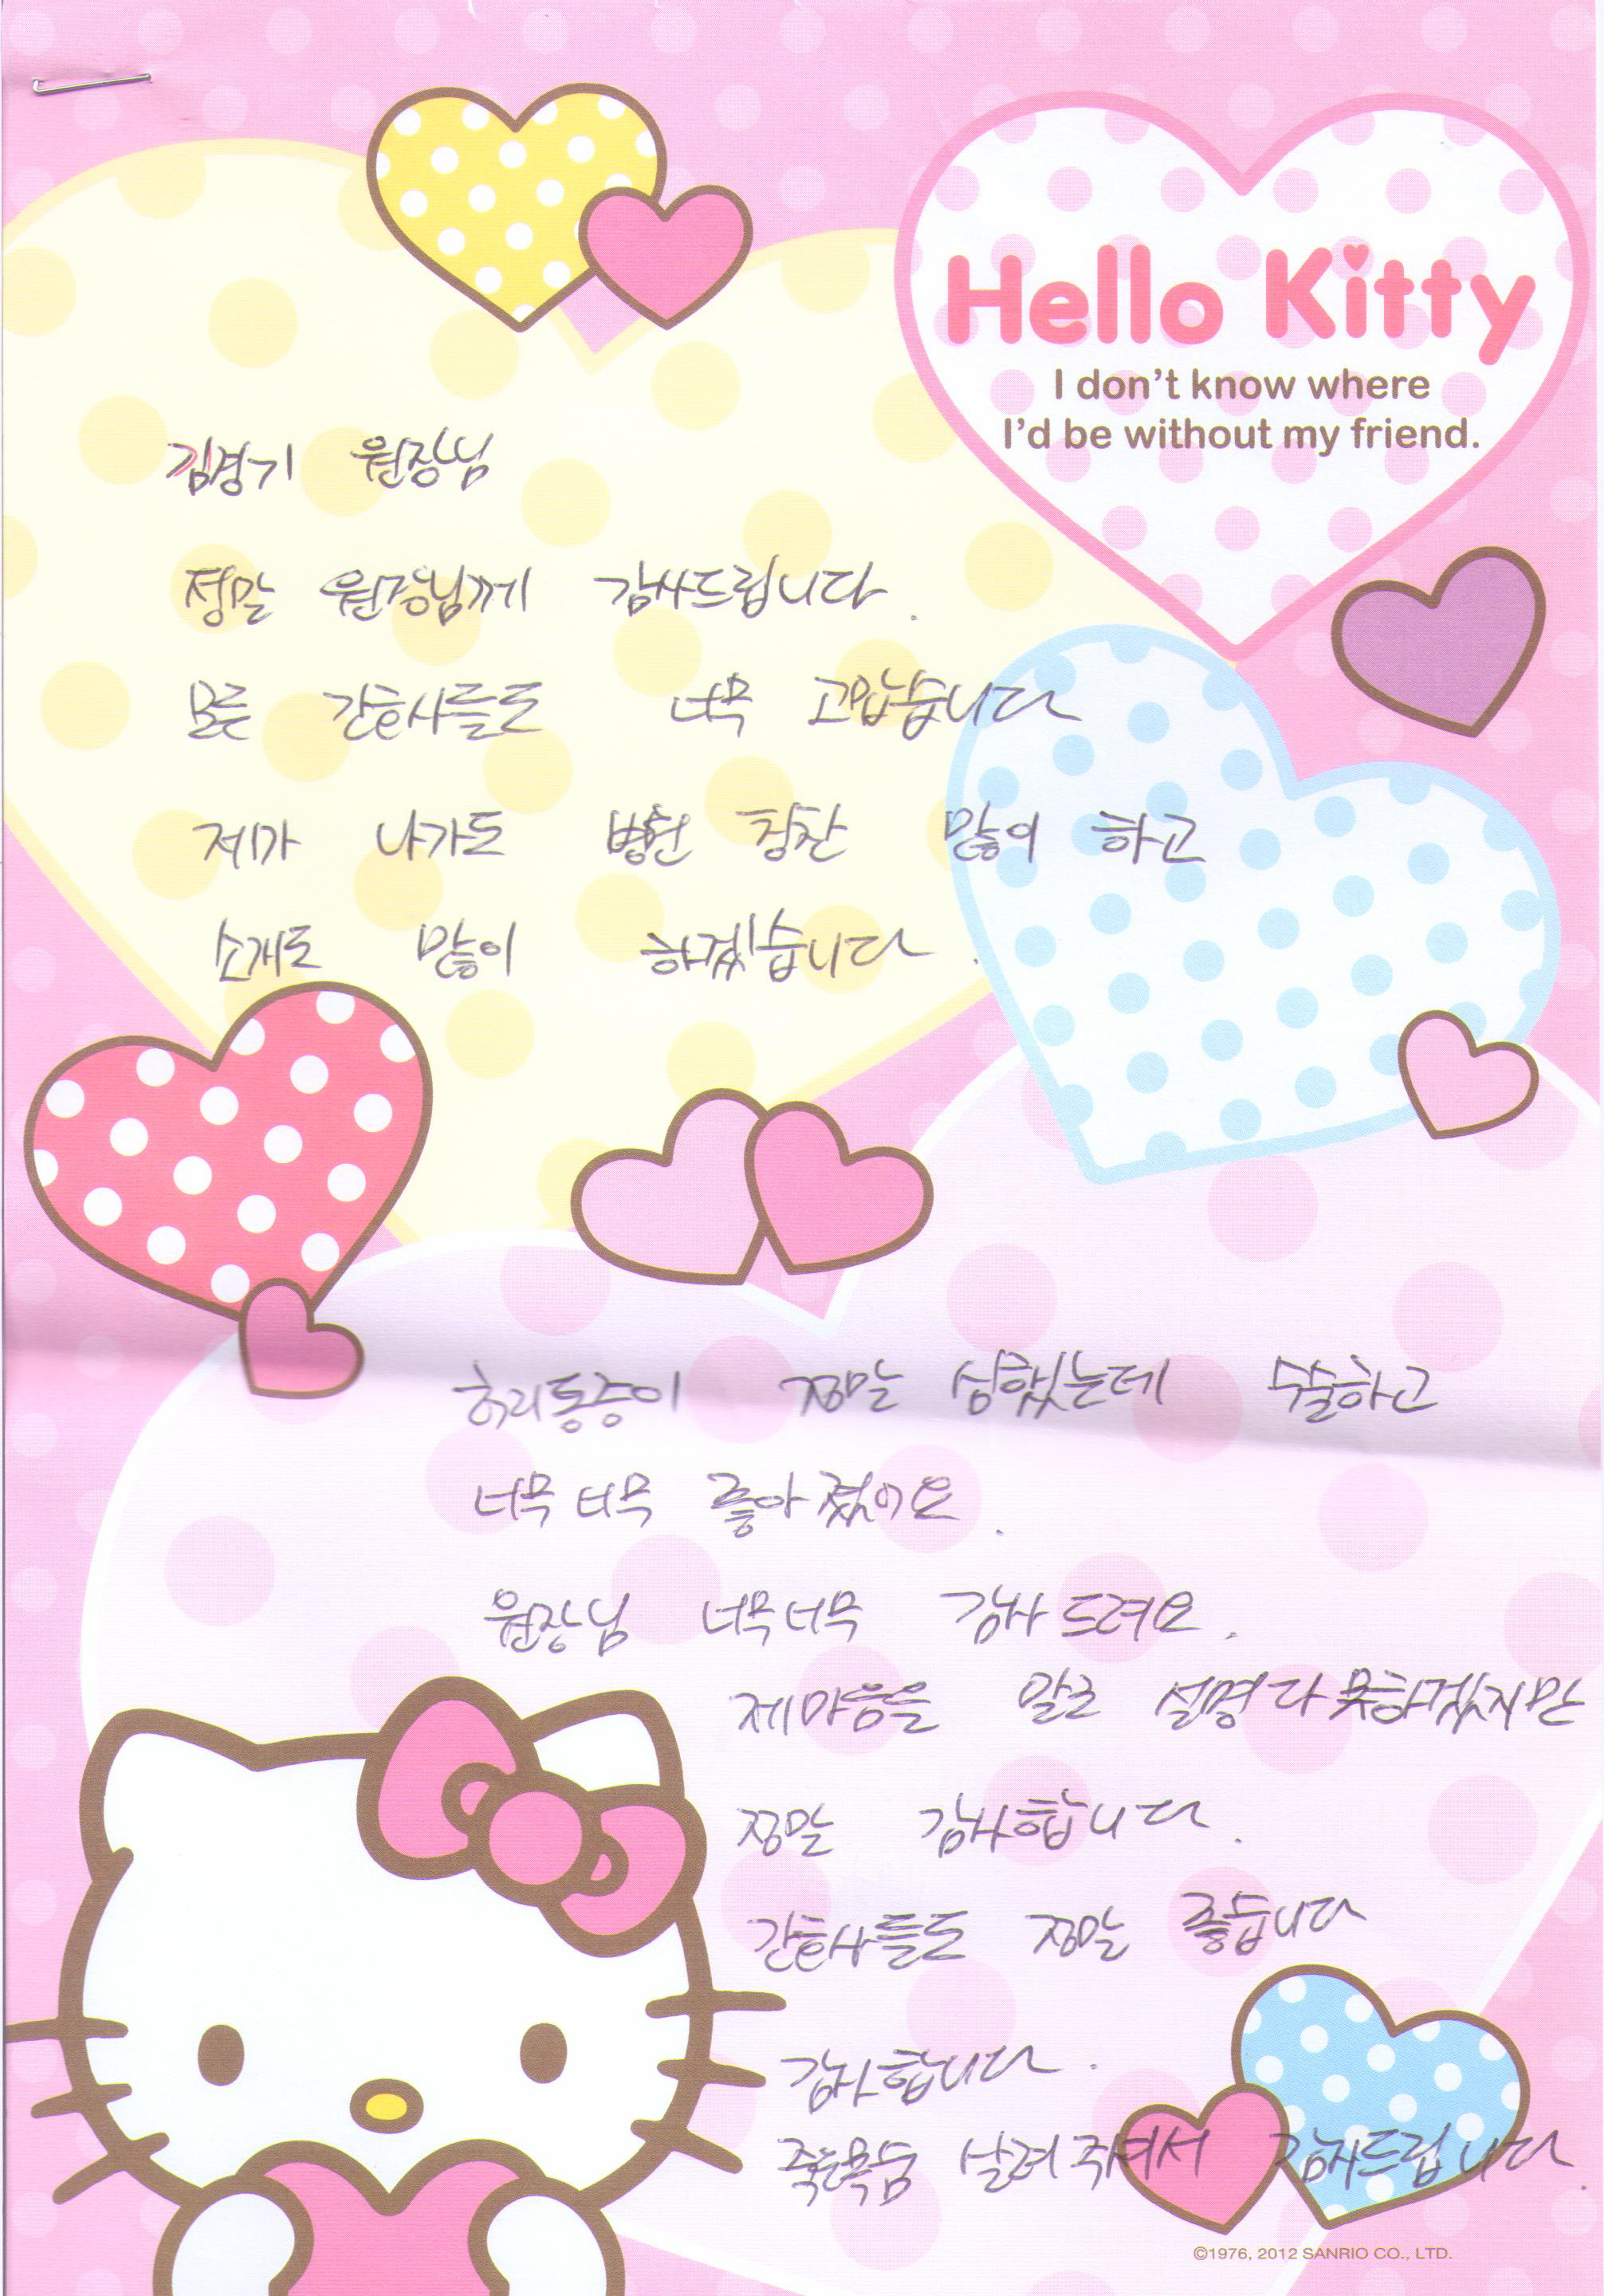 Hello Kitty
I don't know where
I'd be without my friend.
김경기 원장님
정말 원장님께 감사드립니다.
모든 간호사들도 너무 고맙습니다
제가 나가도 병원 칭찬 많이 하고
소개도 많이 하겠습니다.
허리통증이 정말 심했는데 수술하고
너무너무 좋아졌어요.
원장님 너무너무 감사드려요.
제마음을 말로 설명 다 못하겠지만
정말 감사합니다.
간호사들도 정말 좋습니다
감사합니다.
죽는목숨 살려주셔서 감사드립니다.
©1976, 2012 SANRIO CO., LTD.